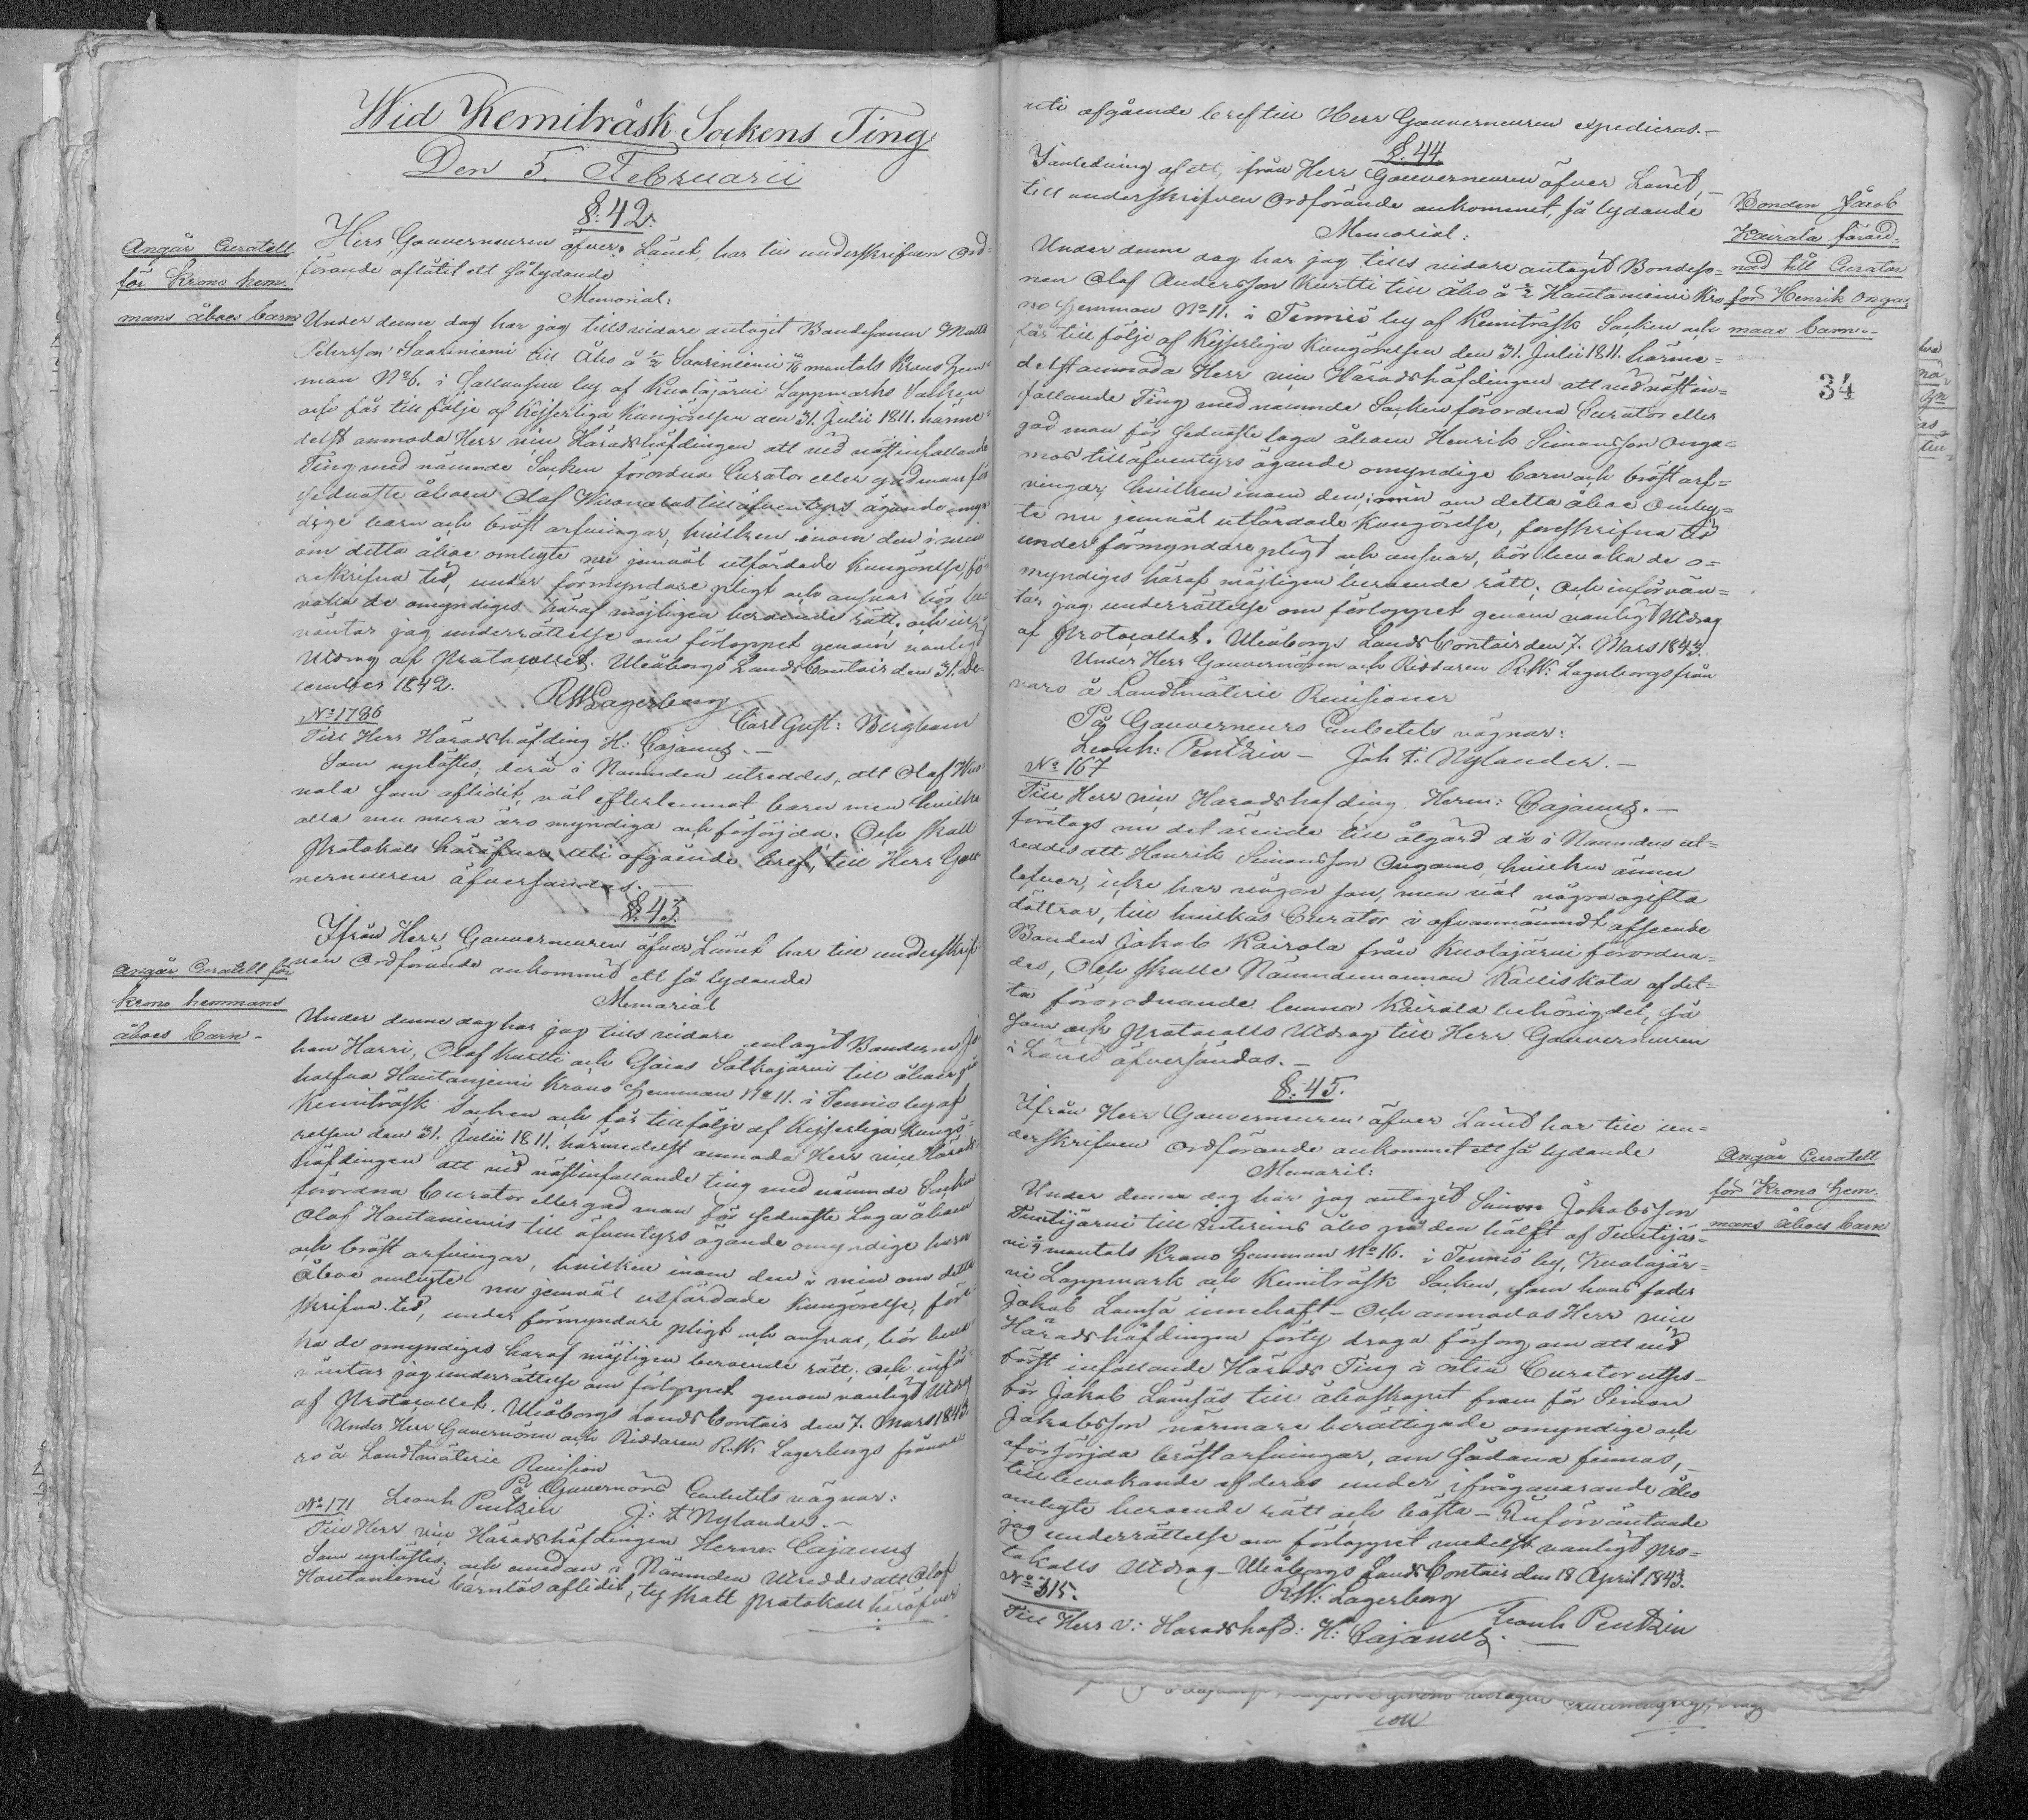 Wid Kemiträsk Sockens Ting
Den 5. Februarii
§. 42.
Angår Curatell
för Krono hem-
mans åboes barn
Herr Gouverneuren öfver Länet, har till underskrifven Ord-
förande aflåtit ett så lydande
Memorial:
Under denne dag har jag tillsvidare antagit Bondesonen Matts
Petersson Saariniemi till Åbo å 1/2 Saariniemi mantals Krono Hem-
man No 6. i Salla by af Kuolajärvi Lappmarks Socken
och får till följe af Kejserliga Kungörelsen den 31. Julii 1811. härme-
delst anmoda Herr vice Häradshöfdingen att vid nästinfallande
Ting med nämnde Socken förordna Curator eller godman för
sednaste åboen Olof Wuonalas till äfventyrs ägande omyn-
dige barn och bröst arfvingar, hvilken inom den i min
om detta åboe ombyte nu jemväl utfärdade Kungörelse, fö-
reskrifna tid, under förmyndare pligt och ansvar bör be-
vaka de omyndiges häraf möjligen beroende rätt; och inför-
väntar jag underrättelse om förloppet genom vanligt
Utdrag af Protocollet. Uleåborgs Lands Contoir den 31. De-
cember 1842.
RWLagerborg
Carl Gust: Bergbom
No 1786
Till Herr Häradshöfding H: Cajanus. -
Som uplästes, derå i Nämnden utreddes, att Olof Wuo-
nala som aflidit, väl efterlemnat barn men hvilka
alla nu mera äro myndiga och försörjda; Och skall
Protokoll häröfver uti afgående bref, till Herr Gou-
verneuren öfversändas. -
§. 43.
Angår Curatell för
krono hemmans
åboes barn -
Ifrån Herr Gouverneuren öfver Länet har till underskrif-
ven Ordförande ankommit ett så lydande
Memorial
Under denne dag har jag tills vidare antagit Bönderne Jo-
han Harri, Olof Kurtti och Esaias Salkojärvi till åboer på
halfva Hautaniemi Krono Hemman No 11. i Tennio by af
Kemiträsk Socken och får till följe af Kejserliga Kungö-
relsen den 31. Julii 1811. härmedelst anmoda Herr vice Härads-
höfdingen att vid nästinfallande ting med nämnde Socken
förordna Curator eller god man för sednaste Laga åboen
Olof Hautaniemis till äfventyrs ägande omyndige barn
och bröst arfvingar, hvilken inom den i min om detta
Åboe ombyte nu jemväl utfärdade Kungörelse, före
skrifna tid, under förmyndare pligt och ansvar, bör beva-
ka de omyndiges häraf möjligen beroende rätt; och inför-
väntar jag underrättelse om förloppet genom vanligt Utdrag
af Protocollet. Uleåborgs Lands Contoir den 7. Mars 1843.
Under Herr Guvernören och Riddaren R. W. Lagerborgs frånva-
ro å Landtmäterie Revision
På Guvernörs Embetets vägnar:
Leonh Pentzin J: F Nylander. -
No 171
Till Herr vice Häradshöfdingen Herm: Cajanus
Som uplästes, och emedan i Nämnden utreddes att Olof
Hautaniemi barnlös aflidit, ty skall Protokoll häröfver
uti afgående bref till Herr Gouverneuren expedieras. -
§. 44
I anledning af ett, ifrån Herr Gouverneuren öfver Länet, -
till underskrifven Ordförande ankommet, så lydande
Bonden Jacob
Kairala förord-
nad till Curator
för Henrik Onga-
maas barn. -
34
Memorial:
Under denne dag har jag tills vidare antagit Bondeso-
nen Olof Andersson Kurtti till åbo å 1/2 Hautaniemi Kro
no Hemman No 11. i Tennio by af Kemiträsk Socken och
får till följe af Kejserliga Kungörelsen den 31. Julii 1811. härme-
delst anmoda Herr vice Häradshöfdingen att vid nästin-
fallande Ting med nämnde Socken förordna Curator eller
god man för sednaste laga åboen Henrik Simonsson Onga-
mos till äfventyrs ägande omyndige barn och bröst arf-
vingar, hvilken inom den, i min om detta åboe omby-
te nu jemväl utfärdade Kungörelse, föreskrifna tid
under förmyndare pligt och ansvar, bör bevaka de o-
myndiges häraf möjligen beroende rätt; och införvän-
tar jag underrättelse om förloppet genom vanligt Utdrag
af Protocollet. Uleåborgs Lands Contoir den 7. Mars 1843.
Under Herr Gouvernören och Riddaren R. W: Lagerborgs från
varo å Landtmäterie Revisioner
På Gouverneurs Embetets vägnar:
Leonh: Pentzin - Joh F: Nylander. -
No 167
Till Herr vice Häradshöfding Herm: Cajanus. -
företogs nu det ärende till åtgärd då i Nämnden ut-
reddes att Henrik Simonsson Ongamo, hvilken ännu
lefver, icke har någon son, men väl några ogifta
döttrar, till hvilkas Curator i ofvannämndt afseende
Bonden Jakob Kairala från Kuolajärvi förordna-
des, Och skulle Nämndemannen Kalliskota af det-
ta förordnande lemna Kairala behörig del, så
som och Protocolls Utdrag till Herr Gouverneuren
i Länet öfversändas. -
§. 45.
Ifrån Herr Gouverneuren öfver Länet har till un-
derskrifven Ordförande ankommet ett så lydande
Memorial:
Angår Curatell
för Krono Hem-
mans åboes barn
Under denna dag har jag antagit Simon Jakobsson
Tuutijärvi till interims åbo på den hälft af Tuutijär-
vi mantals Krono Hemman No 16. i Tennio by, Kuolajär-
vi Lappmark och Kemiträsk Socken, som hans fader
Jakob Lamsa innehaft - Och anmodas Herr vice
Häradshöfdingen förty draga försorg om att vid
först infallande Härads Ting å orten Curator utses
för Jakob Lamsas till åboskapet fram för Simon
Jakobsson närmare berättigade omyndige och
oförsörjda bröstarfvingar, om sådana finnas, -
till bevakande af deras under ifrågavarande åbo
ombyte beroende rätt och bästa - Införväntande
jag underrättelse om förloppet medelst vanligt pro-
tokolls Utdrag - Uleåborgs Lands Contoir den 18 April 1843.
RW: Lagerborg
Leonh Pentzin
No 315.
Till Herr v: Häradshöfd: H: Cajanus.